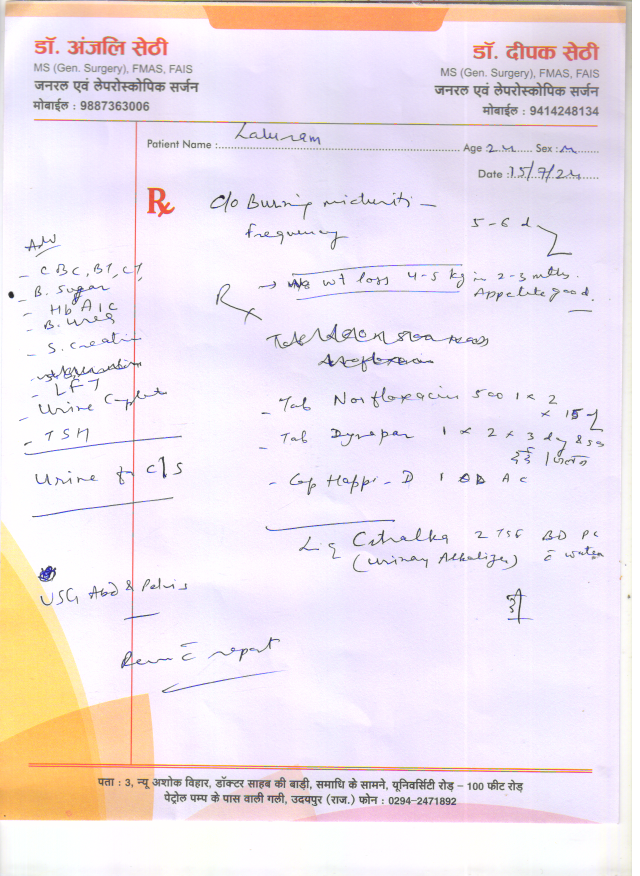 डॉ. अंजलि सेठी
MS (Gen. Surgery), FMAS, FAIS
जनरल एवं लेपरोस्कोपिक सर्जन
मोबाईल : 9887363006
डॉ. दीपक सेठी
MS (Gen. Surgery), FMAS, FAIS
जनरल एवं लेपरोस्कोपिक सर्जन
मोबाईल : 9414248134
Patient Name : Laluram Age Sex : M
Date : 15/7/24
Rx
c/o Burning micturiti
frequency
5-6 d
→ wt loss 4-5 kg in 2-3 mths.
Appetite good.
Adv
- CBC, BT, CT
- B. Sugar
- HbA1c
- B. Urea
- S. Creatin
- LFT
- Urine Complet
- TSH
Urine for c/s
USG Abd & Pelvis
Rx
- Tab Norfloxacin 500 1 x 2
x 15 d
- Tab 1 x 2 x 3 dy & sos
दर्द / जलन
- Cap Happi-D 1 OD AC
Liq Citralka 2 TSF BD PC
(Urinary Alkalizer) c water
Revw c report
पता : 3, न्यू अशोक विहार, डॉक्टर साहब की बाड़ी, समाधि के सामने, यूनिवर्सिटी रोड़ – 100 फीट रोड़
पेट्रोल पम्प के पास वाली गली, उदयपुर (राज.) फोन : 0294-2471892